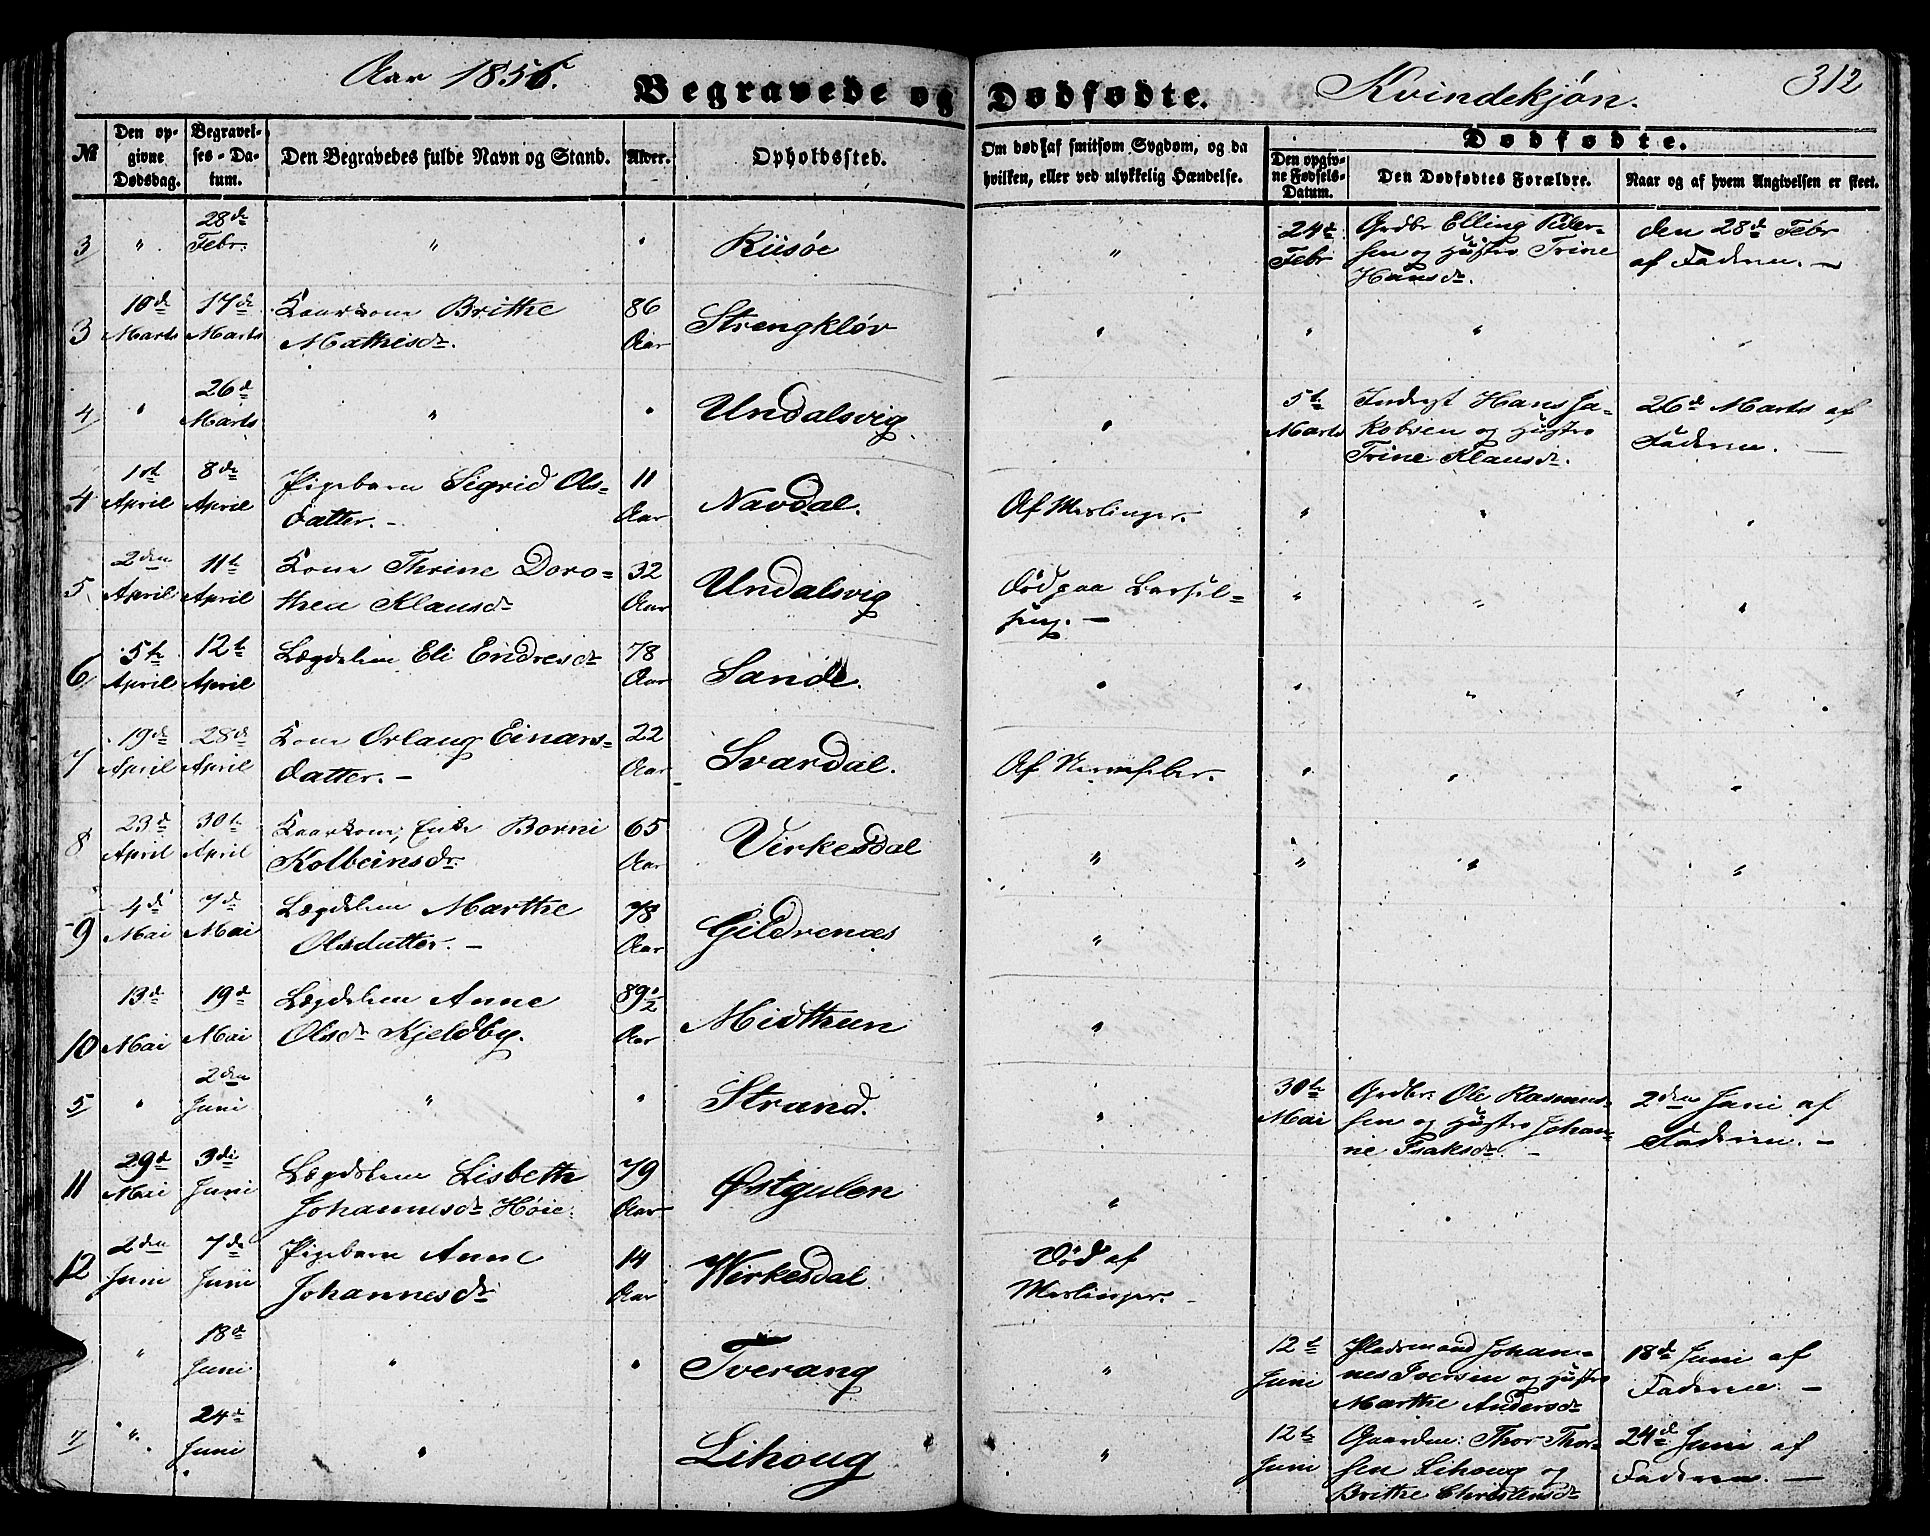 Aar 1856.
Begravede og Dødfødte.
Kvindekjøn.
312
№
Den op-
givne
Dødsdag.
Begravel-
ses-Da-
tum.
Den Begravedes fulde Navn og Stand.
Alder.
Opholdssted.
Om død af smitsom Sygdom, og da
hvilken, eller ved ulykkelig Hændelse.
Dødfødte.
Den opgiv-
ne Fødsels-
Datum.
Den Dødfødtes Forældre.
Naar og af hvem Angivelsen er skeet.
3 " 28de Febr. " " Riisøe " 24de Febr Grdbr Elling Peder-
sen og Hustro Trine
Hansdr.
den 28de Febr
af Faderen. —
3 10de Marts 17de Marts Kaarkone Brithe
Mathisdr.
86 Aar Strengkløv " " " "
4 " 26de Marts " " Undalsvig. " 5te Marts Inderst Hans Ja-
kobsen og Hustro
Trine Klausdr.
26de Marts af
Faderen. —
4 1ste April 8de April Pigebarn Sigrid Ols-
datter. —
11 Aar Navdal. Af Meslinger. " " "
5 2den April 11te April Kone Thrine Doro-
thea Klausdr
32 Aar Undalsvig Død paa Barsel-
seng. —
" " "
6 5te April 12te April Lægdslem Eli Endresdr 78 Aar Sande. " " " "
7 19de April 28de April Kone Orlaug Einars-
datter. —
22 Aar Svardal. Af Nervefeber. " " "
8 23de April 30te April Kaarkone, Enke Borni
Kolbeinsdr
65 Aar Virkesdal " " " "
9 4de Mai 7de Mai Lægdslem Marthe
Olsdatter. —
78 Aar Gildrenæs "
10 13de Mai 19de Mai Lægdslem Anne
Olsdr Kjeldby.
89½ Aar Midthun "
5 " 2den Juni " " Strand. " 30te Mai Grdbr. Ole Rasmus-
sen og Hustro Johan-
ne Isaksdr. —
2den Juni af
Faderen. —
11 29de Mai 3die Juni Lægdslem Lisbeth
Johannesdr Høie.
79 Aar Østgulen "
12 2den Juni 7de Juni Pigebarn Anne
Johannesdr
14 Aar Wirkesdal Død af
Meslinger. —
" 18de Juni " " Tverang " 12te Juni Pladsmand Johan-
nes Iversen og Hustro
Marthe Andersdr
18de Juni af
Faderen. —
7 " 24de Juni " Lihoug " 12te Juni Gaardm: Thor Thor-
sen Lihoug og
Brithe Christensdr
24de Juni af
Faderen. —